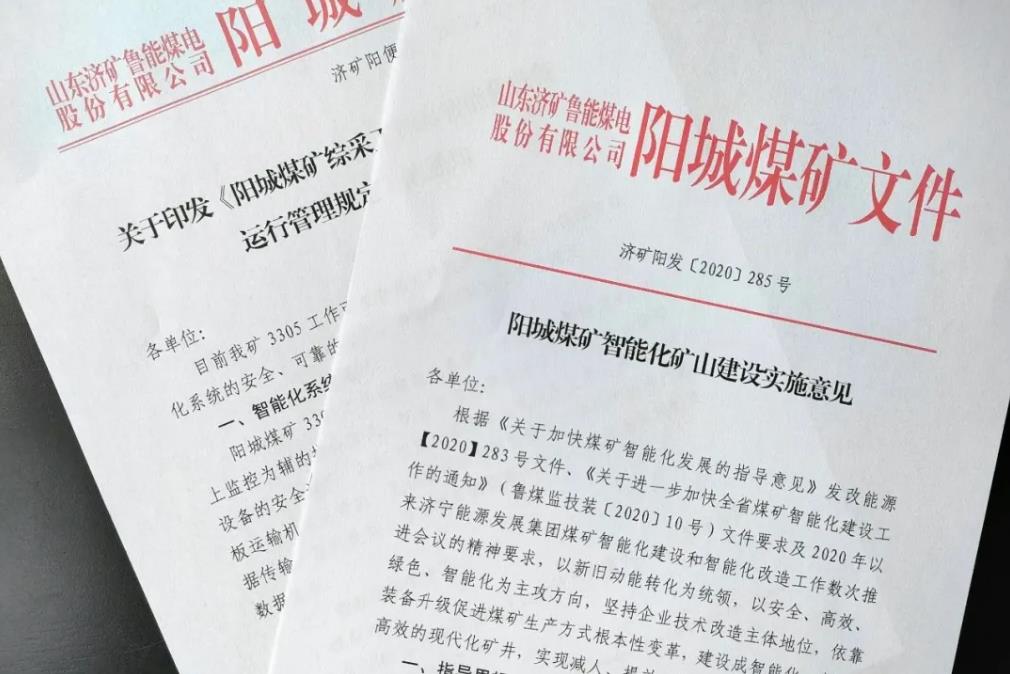 山东济矿鲁能煤电
股份有限公司
阳城
济矿阳便
关于印发《阳城煤矿综采
运行管理规定
各单位：
目前我矿 3305 工作
化系统的安全、可靠的
一、智能化系统
阳城煤矿 33
上监控为辅的
设备的安全
板运输机
据传输
数据
山东济矿鲁能煤电
股份有限公司
阳城煤矿文件
济矿阳发〔2020〕285 号
阳城煤矿智能化矿山建设实施意见
各单位：
根据《关于加快煤矿智能化发展的指导意见》发改能源
【2020】283 号文件、《关于进一步加快全省煤矿智能化建设工
作的通知》（鲁煤监技装〔2020〕10 号）文件要求及 2020 年以
来济宁能源发展集团煤矿智能化建设和智能化改造工作数次推
进会议的精神要求，以新旧动能转化为统领，以安全、高效、
绿色、智能化为主攻方向，坚持企业技术改造主体地位，依靠
装备升级促进煤矿生产方式根本性变革，建设成智能化、
高效的现代化矿井，实现减人、提
一、指导思